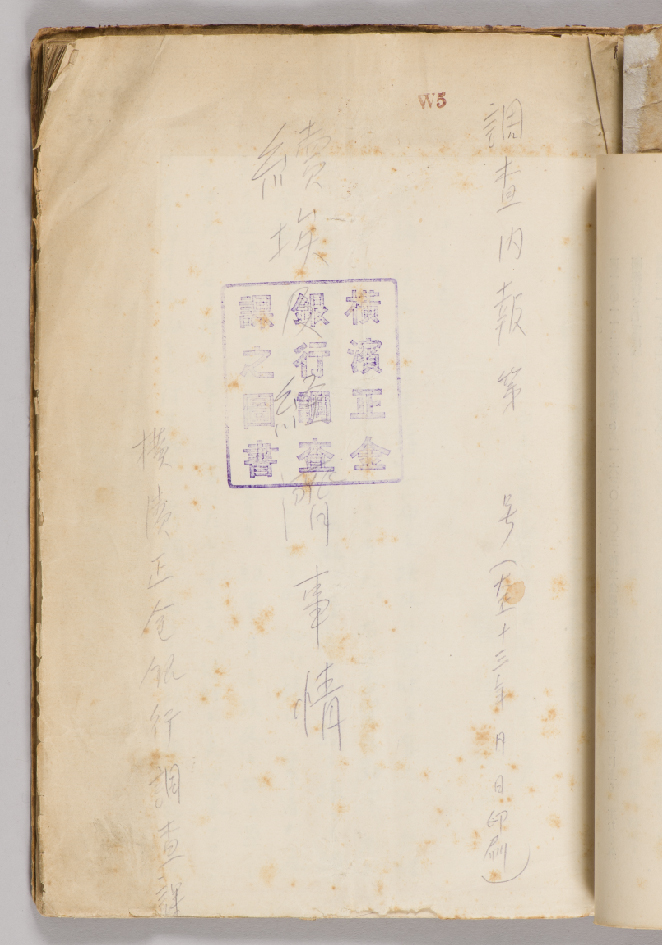 W5
調査内報第 号(大正十三年 月 日印刷)
續埃及經濟事情
横濱正金
銀行調査
課之圖書
横濱正金銀行調査課